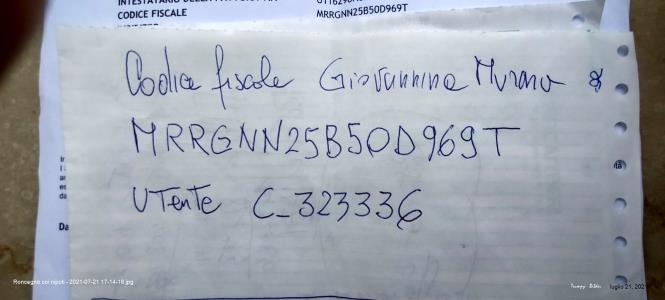 CODICE FISCALE
MRRGNN25B50D969T
Codice fiscale Giovannina Murano
MRRGNN25B50D969T
UTENTE C_323336
Da
Roncegno coi nipoti - 2021-07-21 17-14-18.jpg
luglio 21, 2021